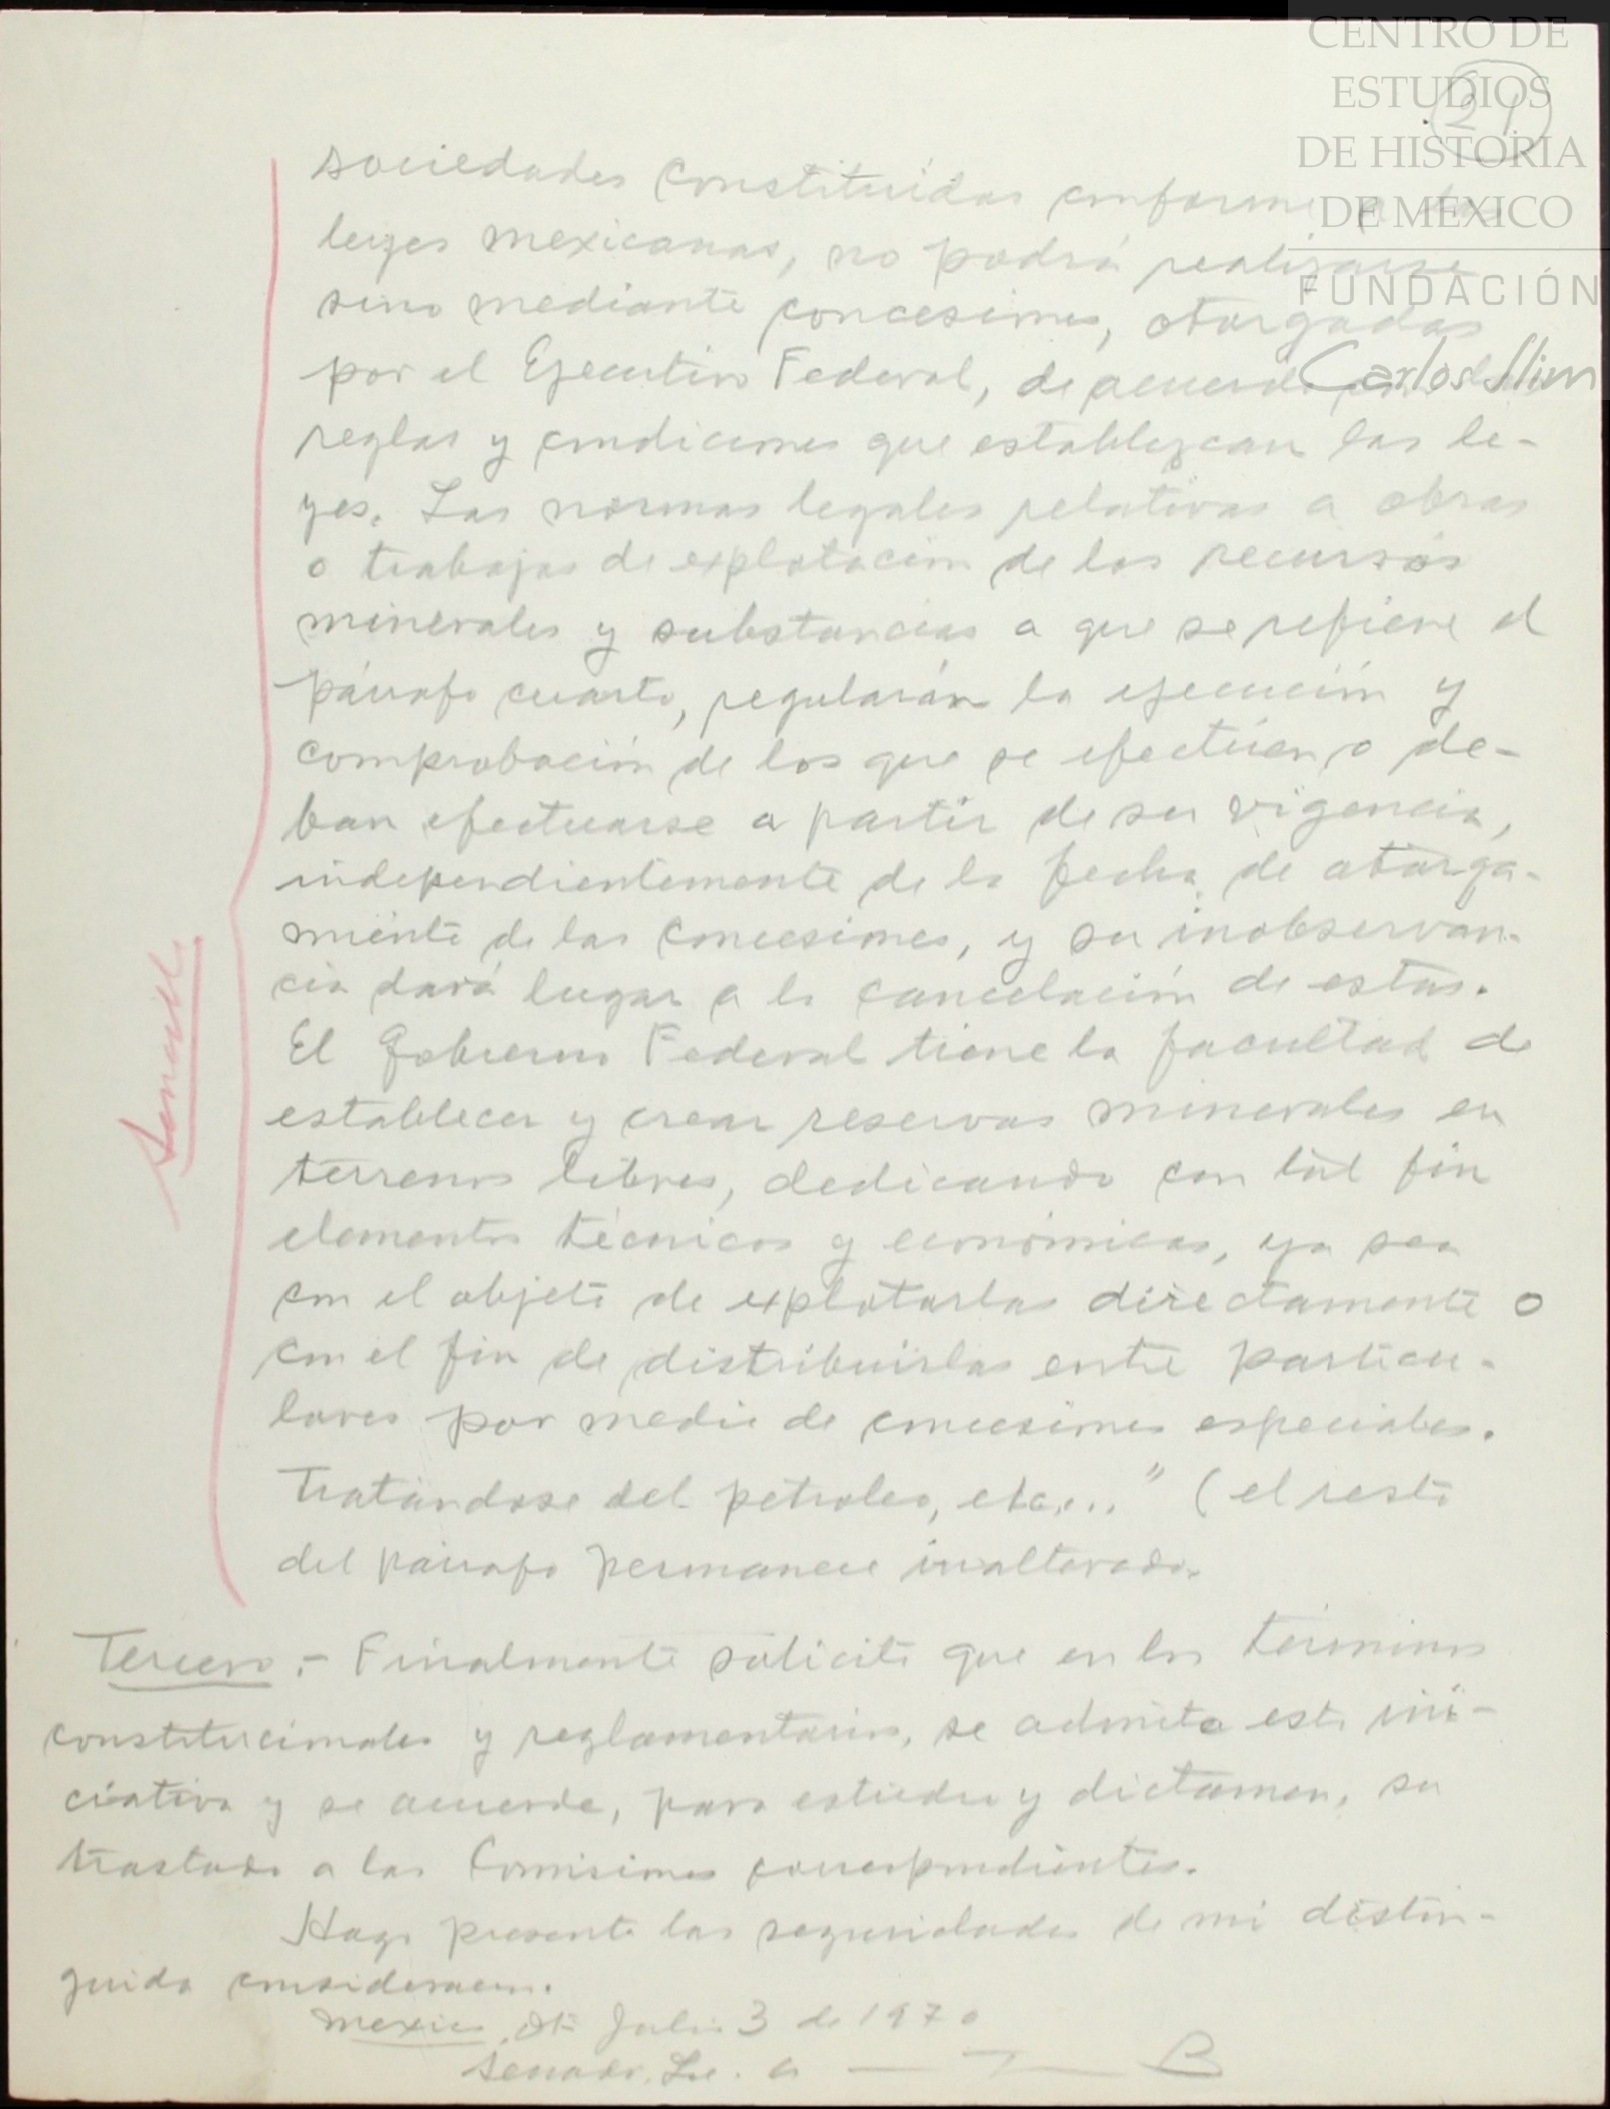 CENTRO DE
ESTUDIOS
DE HISTORIA
DE MÉXICO
FUNDACIÓN
Carlos Slim
21
sociedades constituídas conforme a las
leyes mexicanas, no podrá realizarse
sino mediante concesiones, otorgadas
por el Ejecutivo Federal, de acuerdo con las
reglas y condiciones que establezcan las le-
yes. Las normas legales relativas a obras
o trabajos de explotación de los recursos
minerales y substancias a que se refiere el
párrafo cuarto, regularán la ejecución y
comprobación de los que se efectúen o de-
ban efectuarse a partir de su vigencia,
independientemente de la fecha de otorga-
miento de las concesiones, y su inobservan-
cia dará lugar a la cancelación de estas.
El Gobierno Federal tiene la facultad de
establecer y crear reservas minerales en
terrenos libres, dedicando con tal fin
elementos técnicos y económicos, ya sea
con el objeto de explotarlas directamente o
con el fin de distribuirlas entre particu-
lares por medio de concesiones especiales.
Tratándose del petroleo, etc,..." (el resto
del párrafo permanece inalterado.
Tercero.- Finalmente solicito que en los términos
constitucionales y reglamentarios, se admita esta ini-
ciativa y se acuerde, para estudio y dictamen, su
traslado a las Comisiones correspondientes.
Hago presente las seguridades de mi distin-
guida consideracion.
Mexico, Julio 3 de 1970
Senador. Lic.